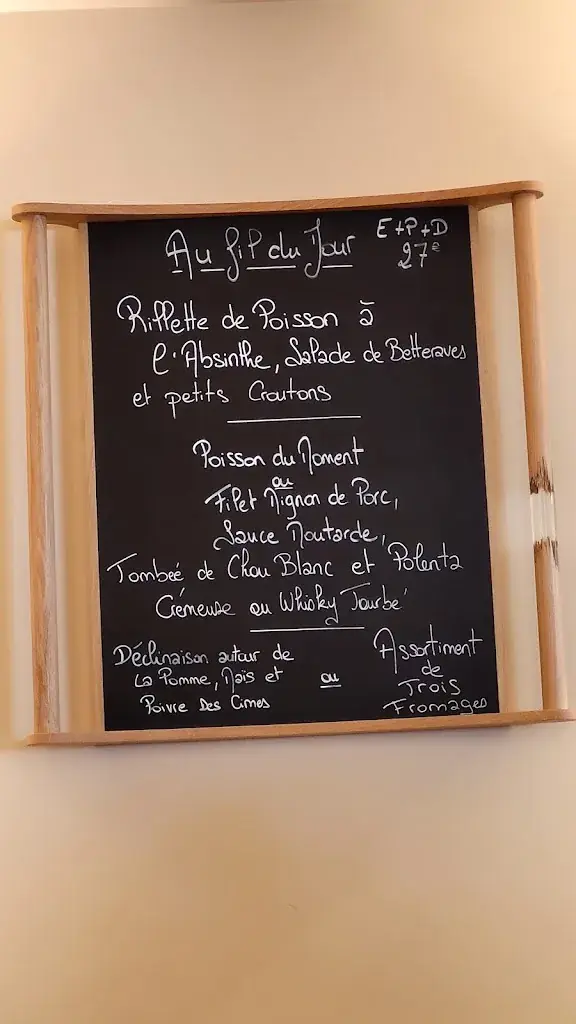 Au fil du Jour
E+P+D
27€
Rillette de Poisson à
l'Absinthe, Salade de Betteraves
et petits Croutons
Poisson du Moment
ou
Filet Mignon de Porc,
Sauce Moutarde,
Tombée de Chou Blanc et Polenta
Crémeuse au Whisky Tourbé
Déclinaison autour de
La Pomme, Maïs et
Poivre Des Cimes
ou
Assortiment
de
Trois
Fromages